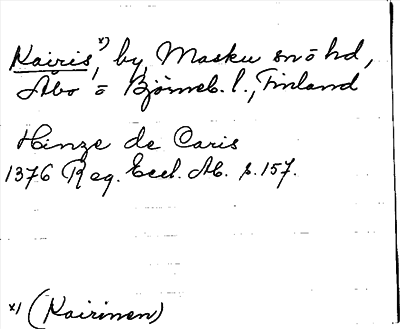 Kairis, *) by, Masku sn ō hd,
Åbo ō Björneb. l., Finland
Hinze de Caris
1376 Reg. Eccl. Ab. s. 157.
*) (Kairinen)